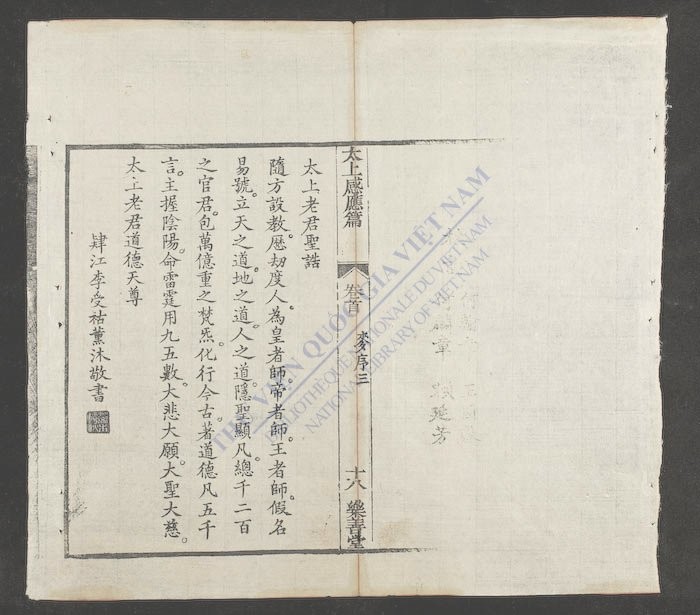 太上感應篇
卷首
十八
樂善堂
太上老君聖誥
隨方設教。歷劫度人。為皇者師。帝者師。王者師。假名
易號。立天之道。地之道。人之道。隱聖顯凡。總千二百
之官君。包萬億重之梵炁。化行今古。著道德凡五千
言。主握陰陽。命雷霆用九五數。大悲大願。大聖大慈。
太上老君道德天尊
肄江李受祜薰沐敬書
THƯ VIỆN QUỐC GIA VIỆT NAM
BIBLIOTHÈQUE NATIONALE DU VIETNAM
NATIONAL LIBRARY OF VIETNAM